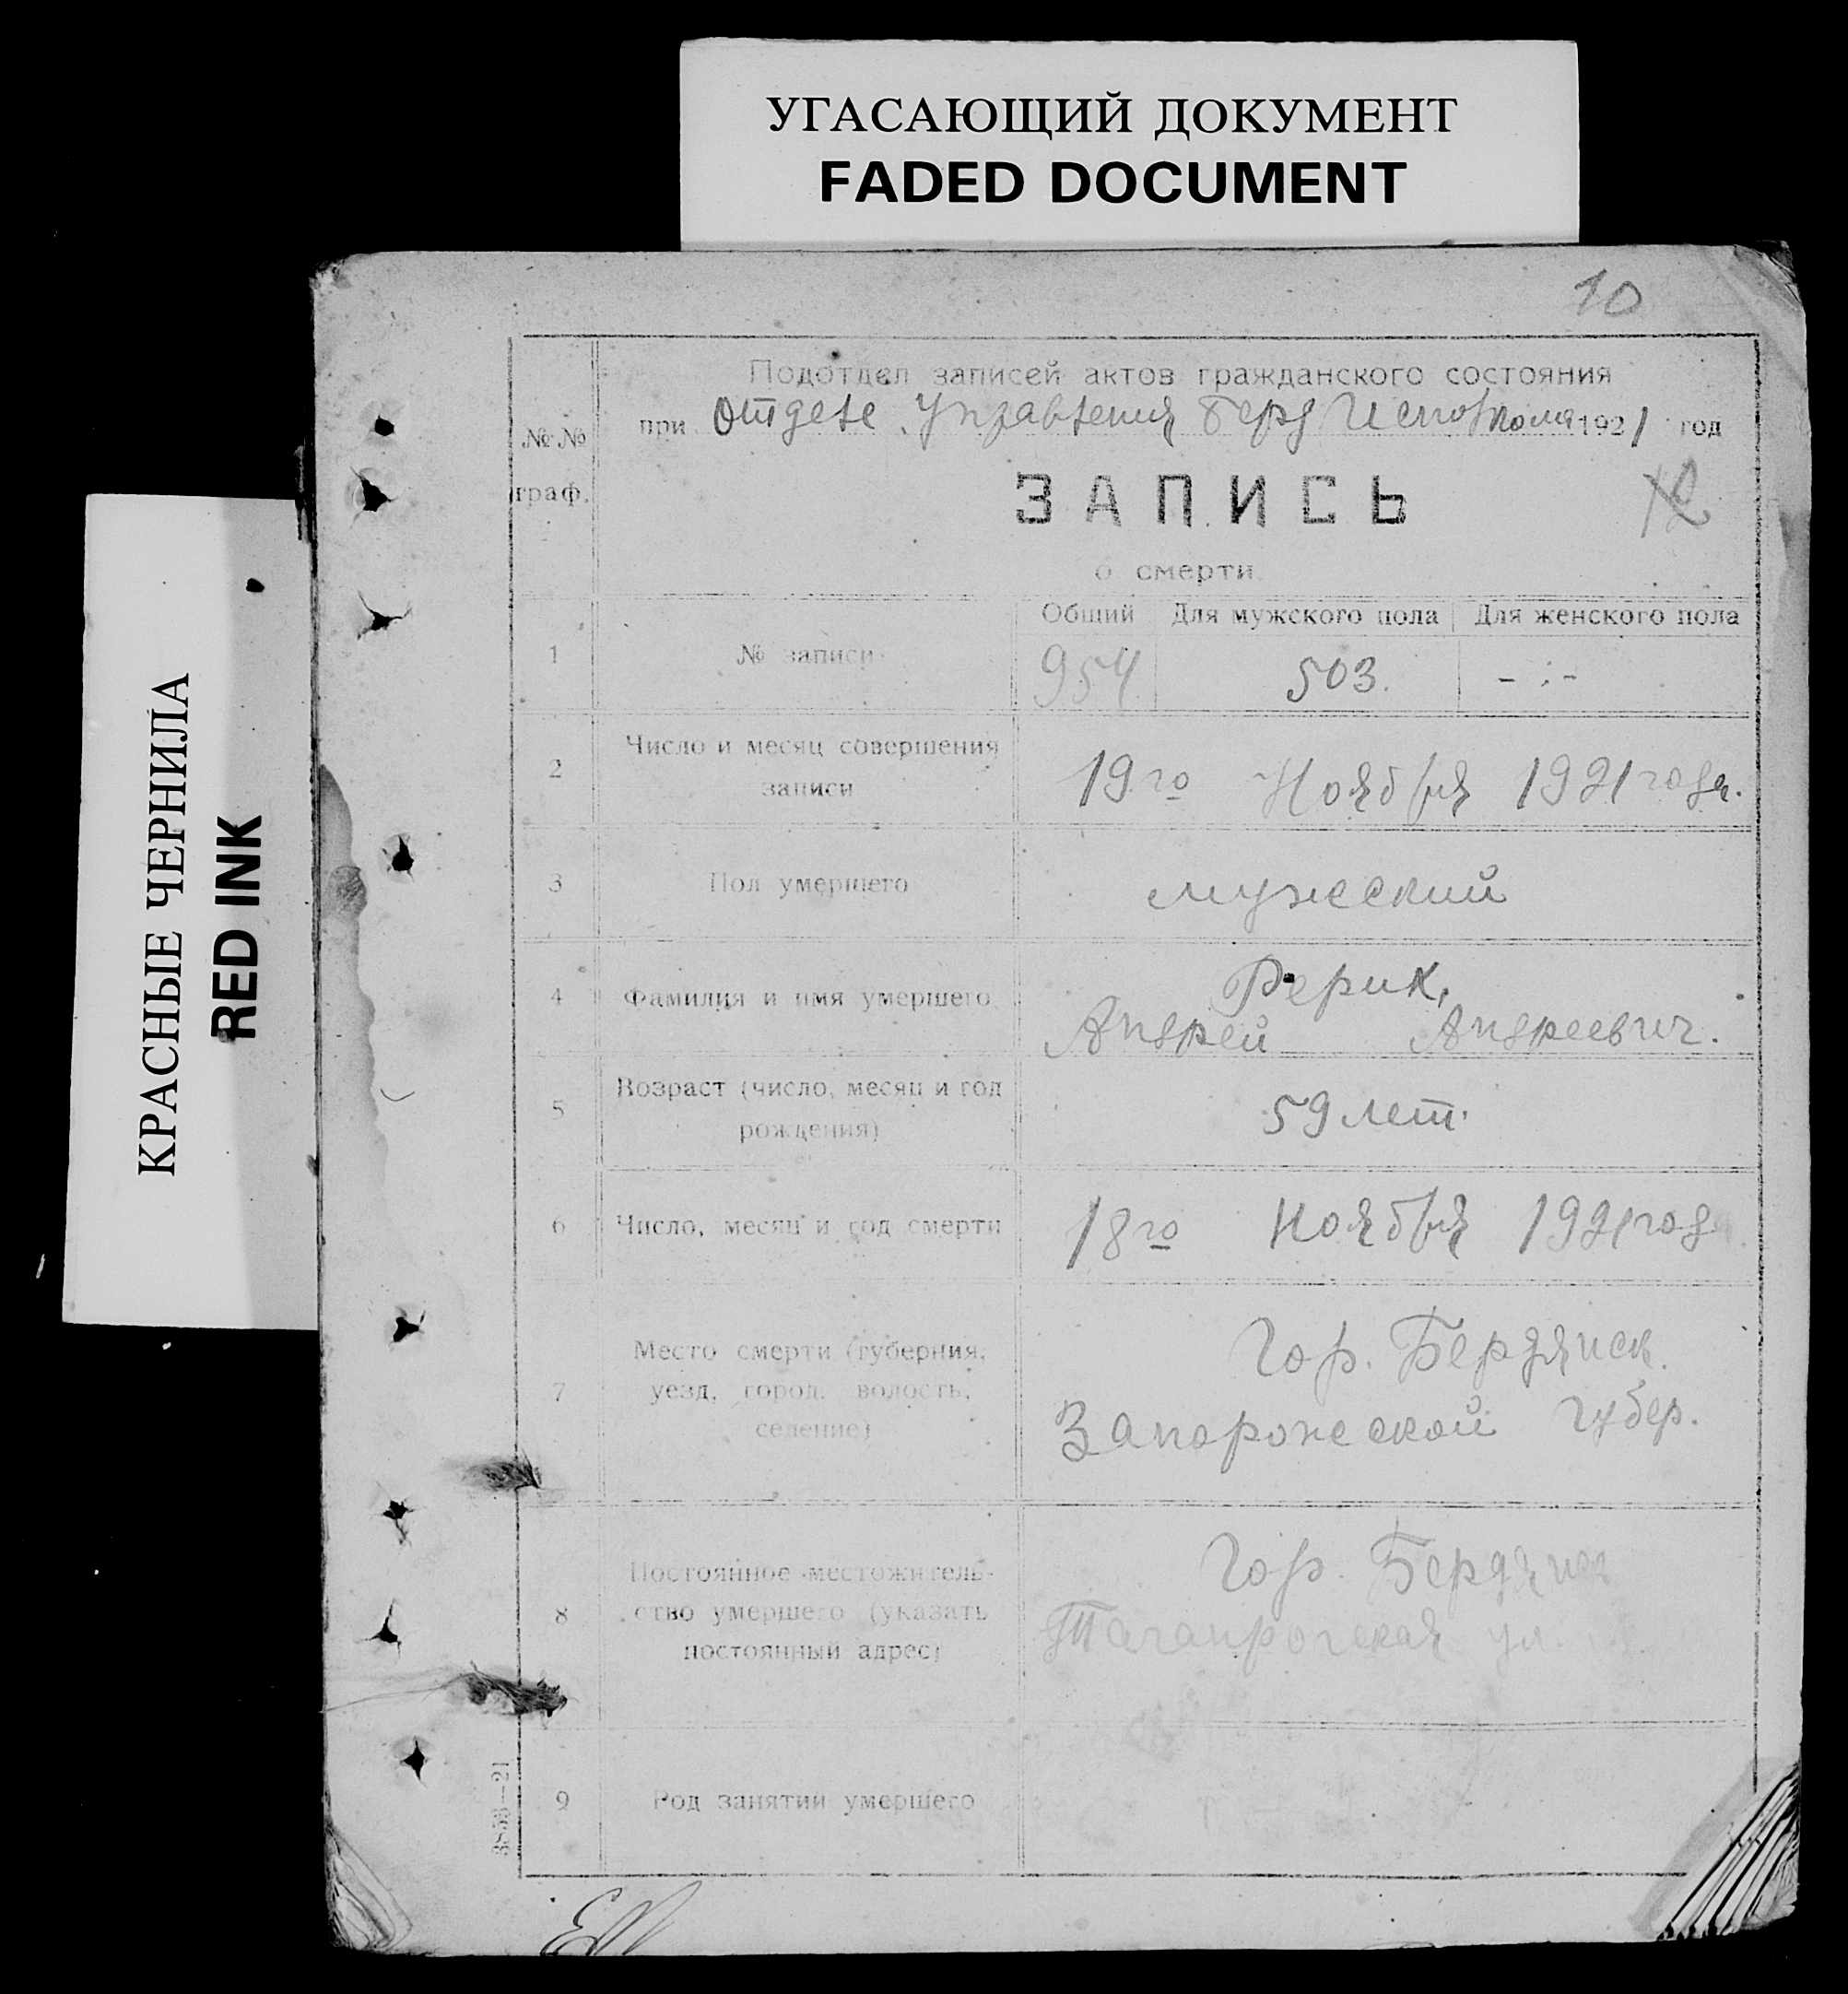 УГАСАЮЩИЙ ДОКУМЕНТ
FADED DOCUMENT
КРАСНЫЕ ЧЕРНИЛА
RED INK
10
№№ граф.
Подотдел записей актов гражданского состояния
при Отделе Управления Берд Исполкома 1921 год
ЗАПИСЬ
о смерти
Общий Для мужского пола Для женского пола
1 № записи 954 503. - : -
2 Число и месяц совершения
записи
19го Ноября 1921 года.
3 Пол умершего мужеский
4 Фамилия и имя умершего
Рерик,
Андрей Андреевич.
5 Возраст (число, месяц и год
рождения)
59 лет.
6 Число, месяц и год смерти 18го Ноября 1921 года
7 Место смерти (губерния,
уезд, город, волость,
селение)
Гор. Бердянск.
Запорожеской губер.
8 Постоянное местожитель-
ство умершего (указать
постоянный адрес)
Гор. Бердянск
Таганрогская ул.
9 Род занятий умершего
3853—21